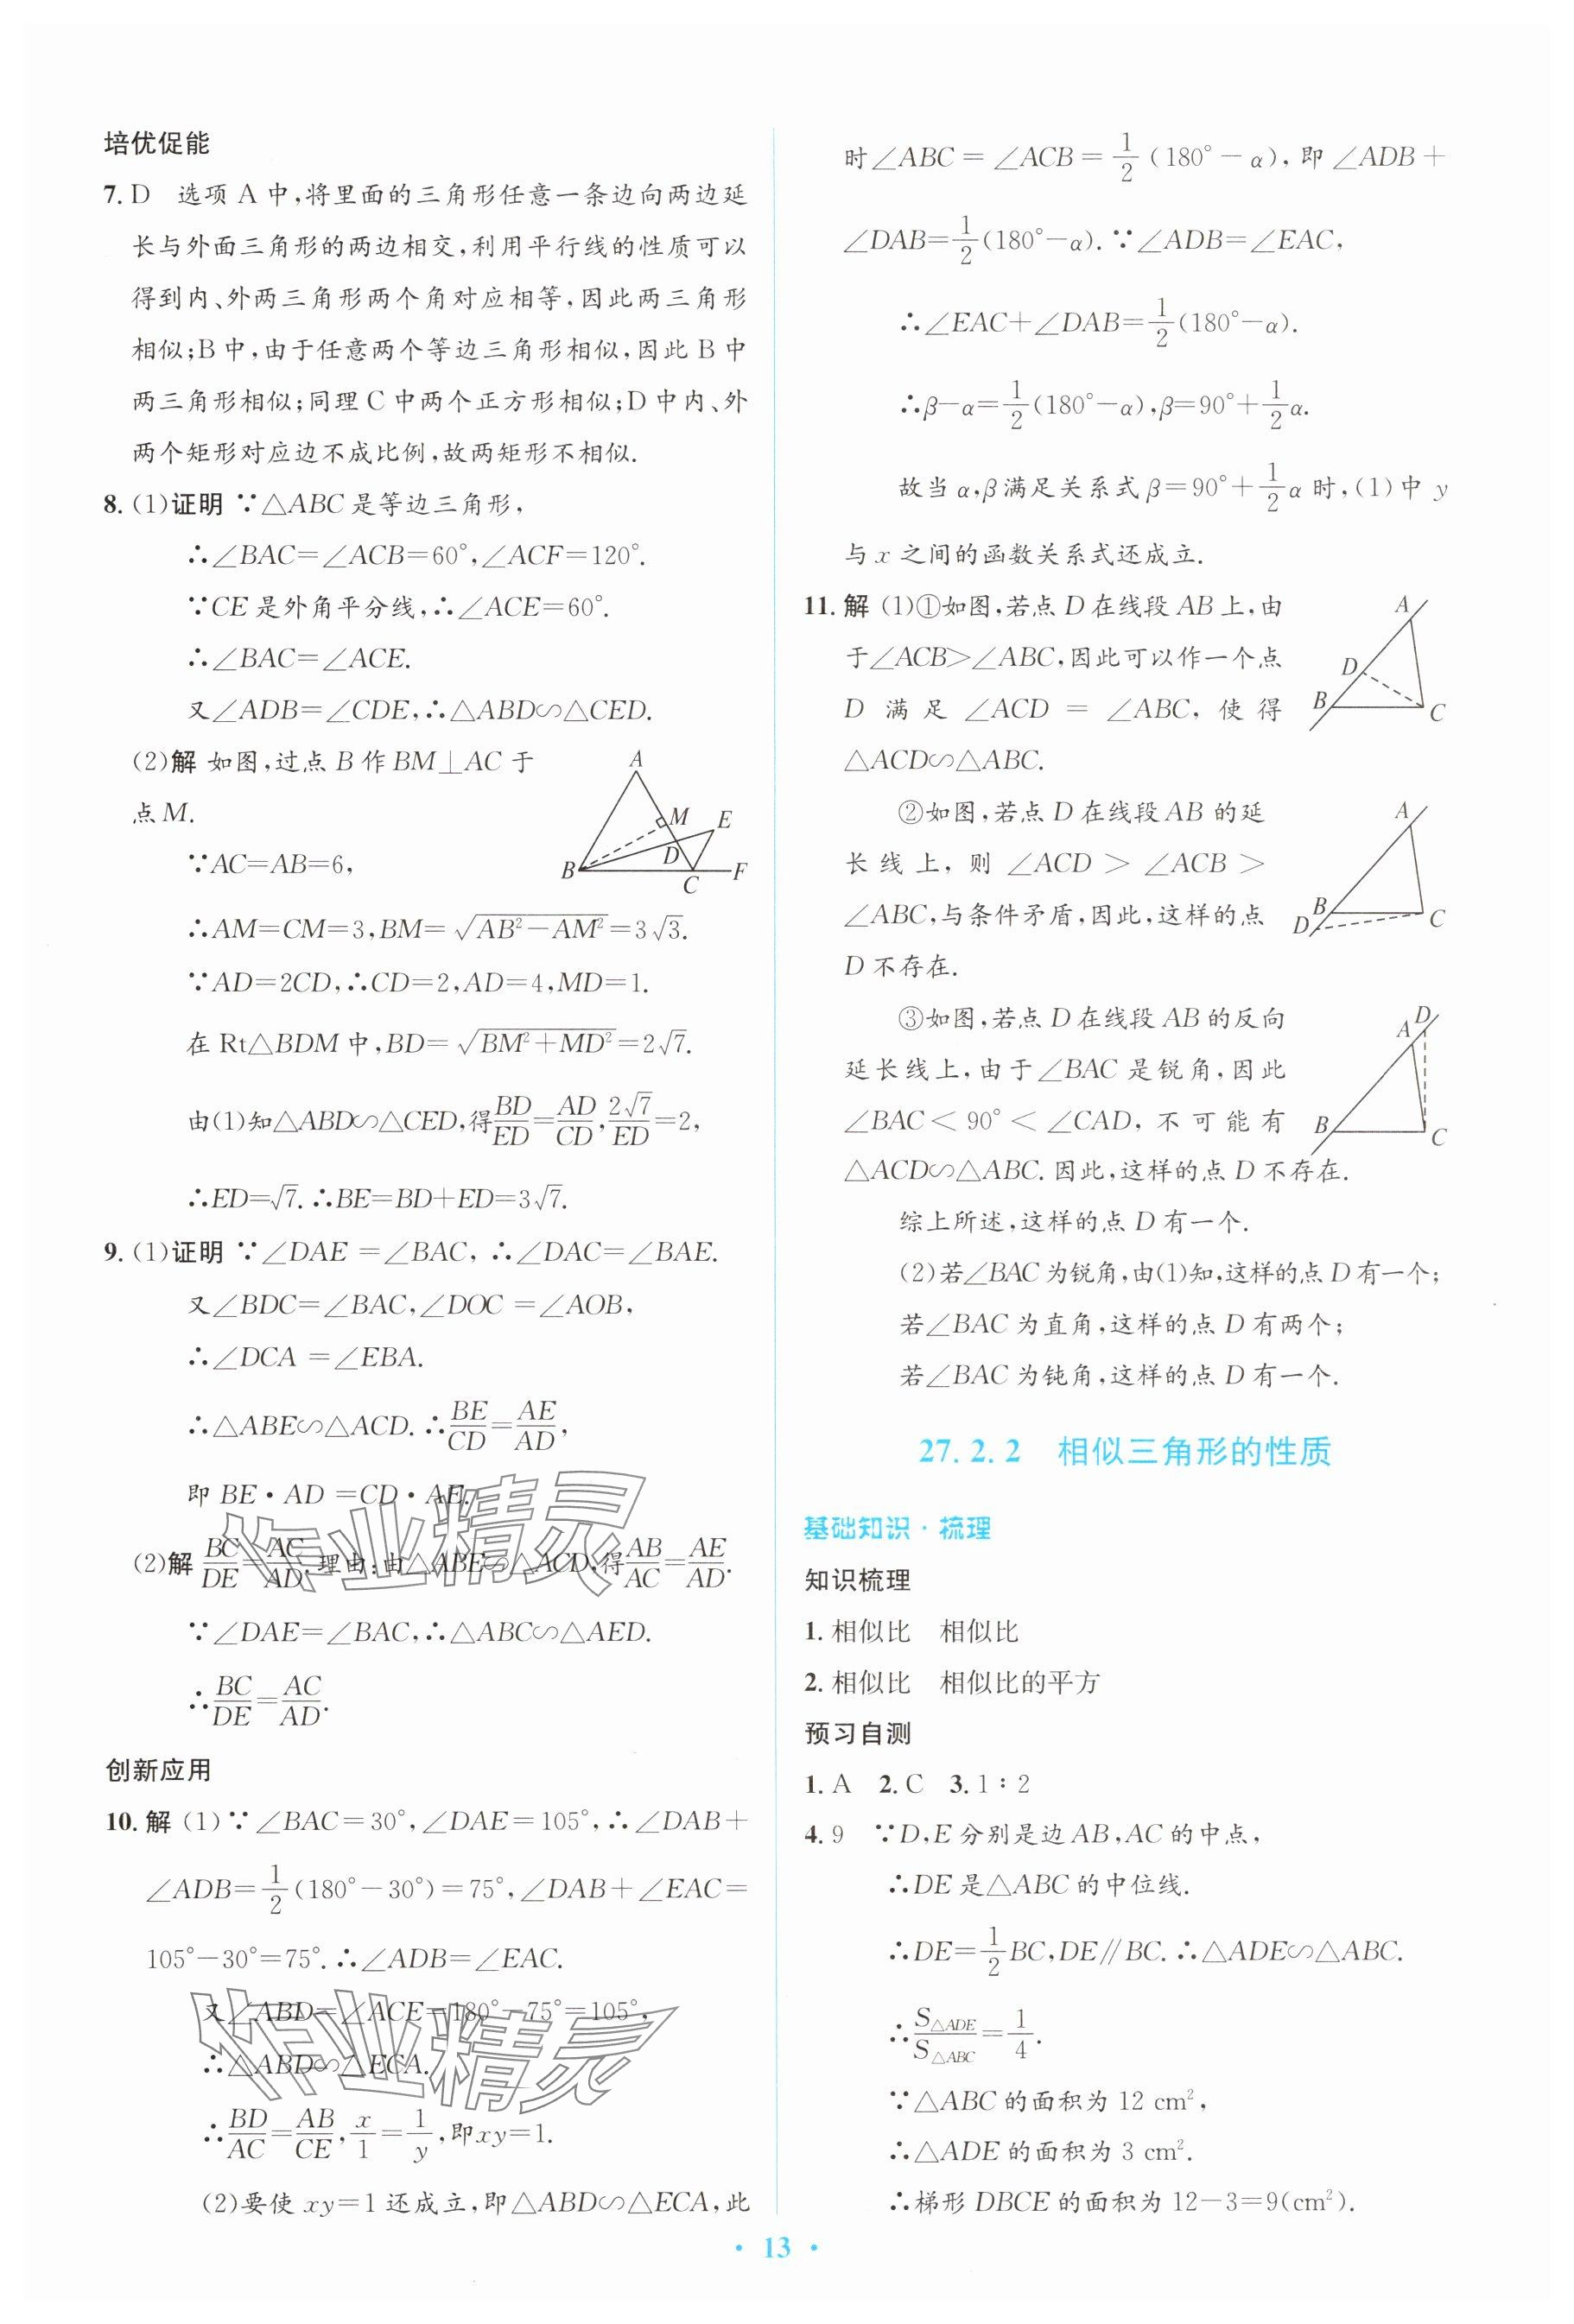 培优促能
7. D 选项 A 中,将里面的三角形任意一条边向两边延
长与外面三角形的两边相交,利用平行线的性质可以
得到内、外两三角形两个角对应相等,因此两三角形
相似;B 中,由于任意两个等边三角形相似,因此 B 中
两三角形相似;同理 C 中两个正方形相似;D 中内、外
两个矩形对应边不成比例,故两矩形不相似.
8. (1)证明 ∵△ABC 是等边三角形,
∴∠BAC=∠ACB=60°,∠ACF=120°.
∵CE 是外角平分线,∴∠ACE=60°.
∴∠BAC=∠ACE.
又∠ADB=∠CDE,∴△ABD∽△CED.
(2)解 如图,过点 B 作 BM⊥AC 于
点 M.
∵AC=AB=6,
A
M
E
D
B
C
F
∴AM=CM=3,BM=√(AB²-AM²)=3√3.
∵AD=2CD,∴CD=2,AD=4,MD=1.
在 Rt△BDM 中,BD=√(BM²+MD²)=2√7.
由(1)知△ABD∽△CED,得BD/ED=AD/CD,2√7/ED=2,
∴ED=√7.∴BE=BD+ED=3√7.
9. (1)证明 ∵∠DAE =∠BAC, ∴∠DAC=∠BAE.
又∠BDC=∠BAC,∠DOC =∠AOB,
∴∠DCA =∠EBA.
∴△ABE∽△ACD.∴BE/CD=AE/AD,
即 BE·AD =CD·AE.
(2)解 BC/DE=AC/AD.理由:由△ABE∽△ACD,得AB/AC=AE/AD.
∵∠DAE=∠BAC,∴△ABC∽△AED.
∴BC/DE=AC/AD.
创新应用
10. 解 (1)∵∠BAC=30°,∠DAE=105°,∴∠DAB+
∠ADB=1/2(180°-30°)=75°,∠DAB+∠EAC=
105°-30°=75°.∴∠ADB=∠EAC.
又∠ABD=∠ACE=180°-75°=105°,
∴△ABD∽△ECA.
∴BD/AC=AB/CE,x/1=1/y,即xy=1.
(2)要使 xy=1 还成立,即△ABD∽△ECA,此
时∠ABC=∠ACB=1/2(180°-α),即∠ADB+
∠DAB=1/2(180°-α).∵∠ADB=∠EAC,
∴∠EAC+∠DAB=1/2(180°-α).
∴β-α=1/2(180°-α),β=90°+1/2α.
故当 α,β 满足关系式 β=90°+1/2α 时,(1)中 y
与 x 之间的函数关系式还成立.
11. 解 (1)①如图,若点 D 在线段 AB 上,由
于∠ACB>∠ABC,因此可以作一个点
D 满足∠ACD=∠ABC,使得
△ACD∽△ABC.
A
D
B
C
②如图,若点 D 在线段 AB 的延
长线上,则∠ACD>∠ACB>
∠ABC,与条件矛盾,因此,这样的点
D 不存在.
A
B
D
C
③如图,若点 D 在线段 AB 的反向
延长线上,由于∠BAC 是锐角,因此
∠BAC<90°<∠CAD,不可能有
△ACD∽△ABC.因此,这样的点 D 不存在.
D
A
B
C
综上所述,这样的点 D 有一个.
(2)若∠BAC为锐角,由(1)知,这样的点 D 有一个;
若∠BAC 为直角,这样的点 D 有两个;
若∠BAC 为钝角,这样的点 D 有一个.
27.2.2 相似三角形的性质
基础知识·梳理
知识梳理
1. 相似比 相似比
2. 相似比 相似比的平方
预习自测
1. A 2. C 3. 1∶2
4. 9 ∵D,E 分别是边 AB,AC 的中点,
∴DE 是△ABC 的中位线.
∴DE=1/2BC,DE∥BC.∴△ADE∽△ABC.
∴S△ADE/S△ABC=1/4.
∵△ABC 的面积为 12 cm²,
∴△ADE 的面积为 3 cm².
∴梯形 DBCE 的面积为 12-3=9(cm²).
作业精灵
作业精灵
· 13 ·